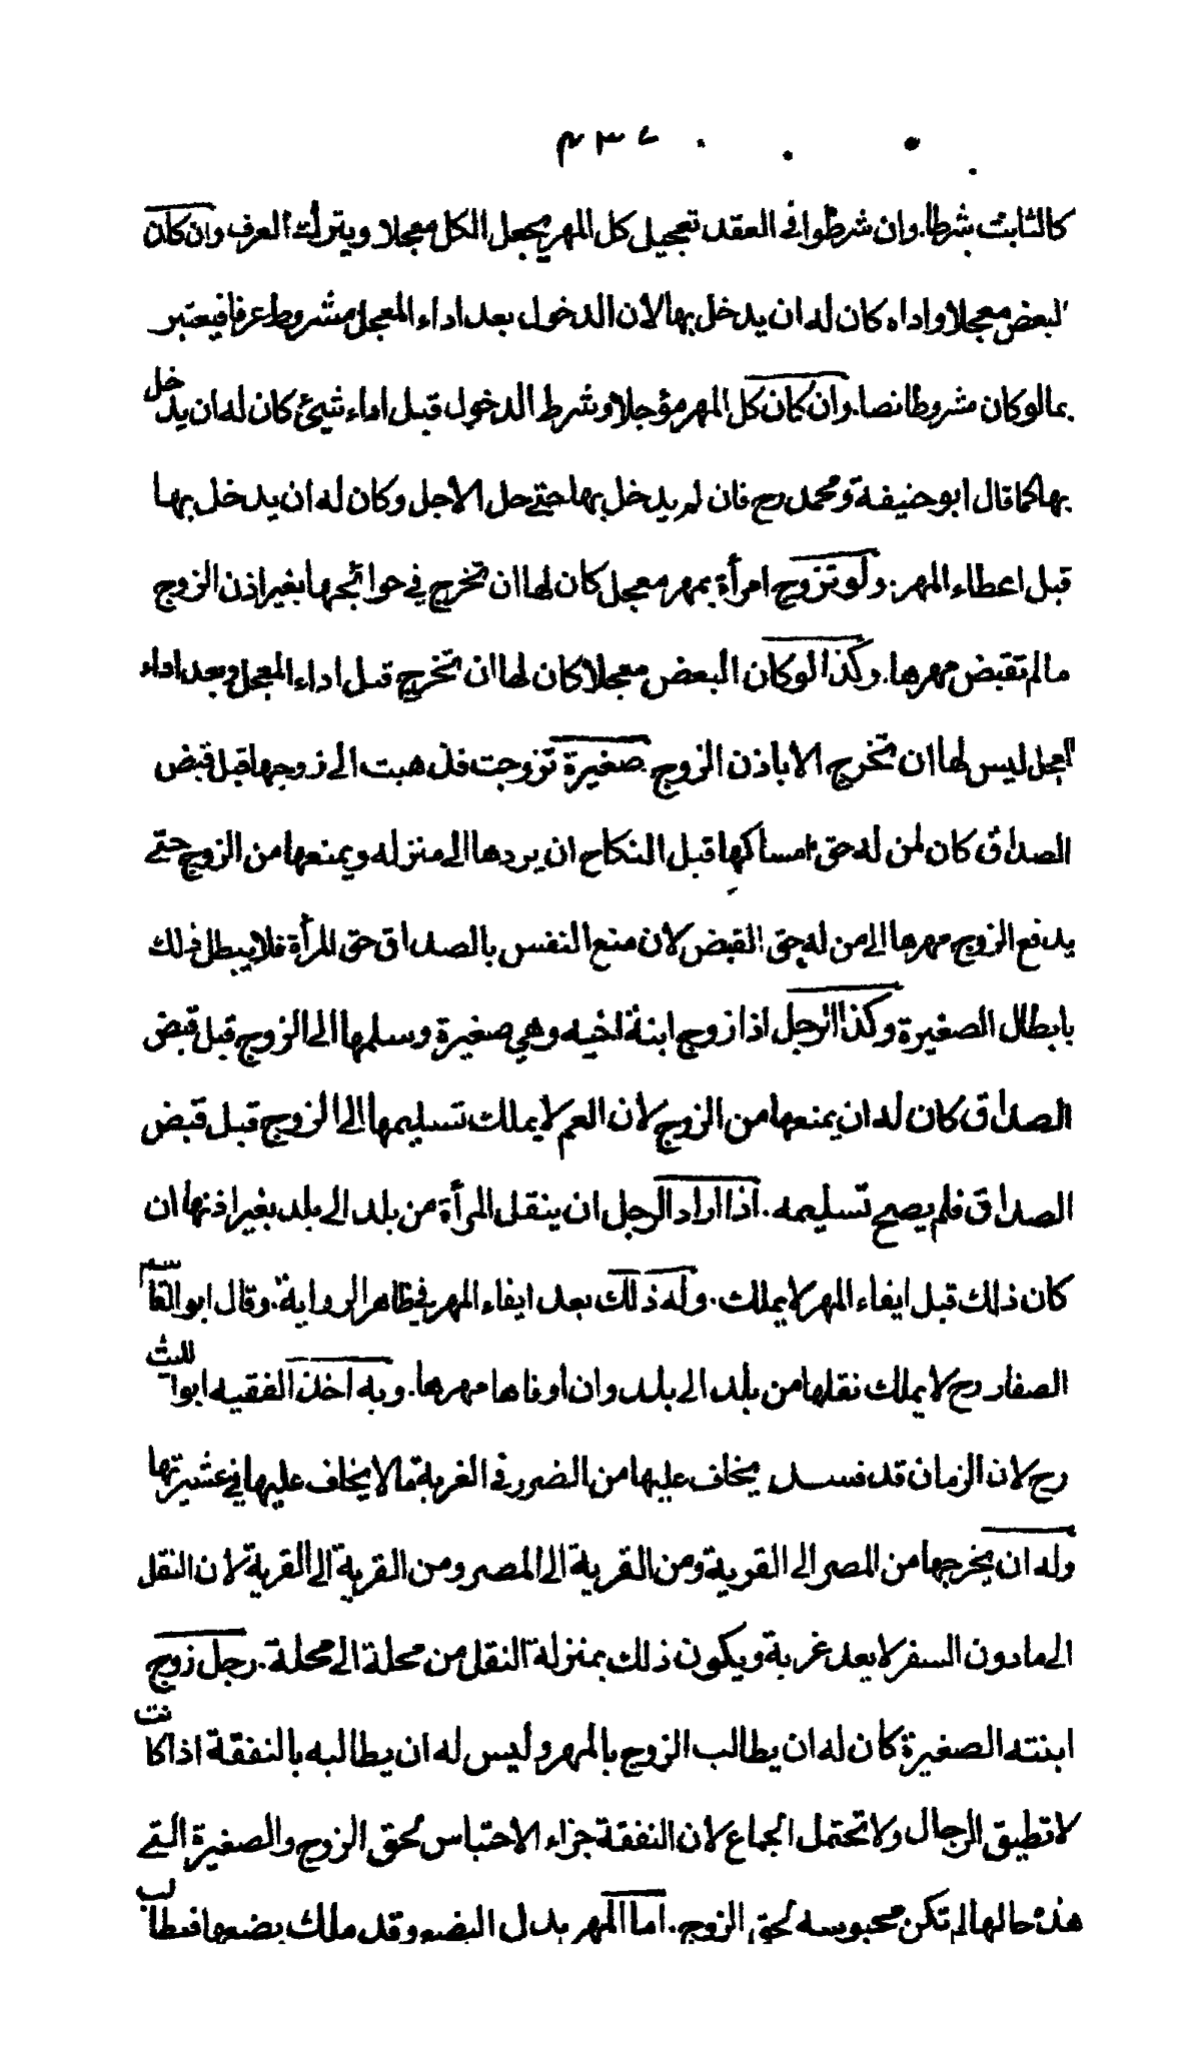 ٤٣٧
كالثابت شرطا. وان شرطوا في العقد تعجيل كل المهر يجعل الكل معجلا ويترك العرف وان كان
البعض معجلا واداه كان له ان يدخل بها لان الدخول بعد اداء المعجل مشروط عرفا فيعتبر
بما لو كان مشروطا نصا. وان كان كل المهر مؤجلا وشرط الدخول قبل اداء شيئ كان له ان يدخل
بها كما قال ابو حنيفة ومحمد رح فان لم يدخل بها حتى حل الاجل وكان له ان يدخل بها
قبل اعطاء المهر. ولو تزوج امرأة بمهر معجل كان لها ان تخرج في حوائجها بغير اذن الزوج
ما لم تقبض مهرها. وكذا لو كان البعض معجلا كان لها ان تخرج قبل اداء المعجل وبعد اداء
المعجل ليس لها ان تخرج الا باذن الزوج. صغيرة تزوجت فذهبت الى زوجها قبل قبض
الصداق كان لمن له حق امساكها قبل النكاح ان يردها الى منزله ويمنعها من الزوج حتى
يدفع الزوج مهرها الى من له حق القبض لان منع النفس بالصداق حق المرأة فلا يبطل ذلك
بابطال الصغيرة وكذا الرجل اذا زوج ابنة اخيه وهي صغيرة وسلمها الى الزوج قبل قبض
الصداق كان له ان يمنعها من الزوج لان العم لا يملك تسليمها الى الزوج قبل قبض
الصداق فلم يصح تسليمه. اذا اراد الرجل ان ينقل المرأة من بلد الى بلد بغير اذنها ان
كان ذلك قبل ايفاء المهر لا يملك. وله ذلك بعد ايفاء المهر في ظاهر الرواية. وقال ابو القاسم
الصفار رح لا يملك نقلها من بلد الى بلد وان اوفاها مهرها. وبه اخذ الفقيه ابو الليث
رح لان الزمان قد فسد يخاف عليها من الضرر في الغربة ما لا يخاف عليها في عشيرتها
وله ان يخرجها من المصر الى القرية ومن القرية الى المصر ومن القرية الى القرية لان النقل
الى ما دون السفر لا يعد غربة ويكون ذلك بمنزلة النقل من محلة الى محلة. رجل زوج
ابنته الصغيرة كان له ان يطالب الزوج بالمهر وليس له ان يطالبه بالنفقة اذا كانت
لا تطيق الرجال ولا تحتمل الجماع لان النفقة جزاء الاحتباس لحق الزوج والصغيرة التي
هذه حالها لم تكن محبوسه لحق الزوج. اما المهر بدل البضع وقد ملك بضعها فيطالب